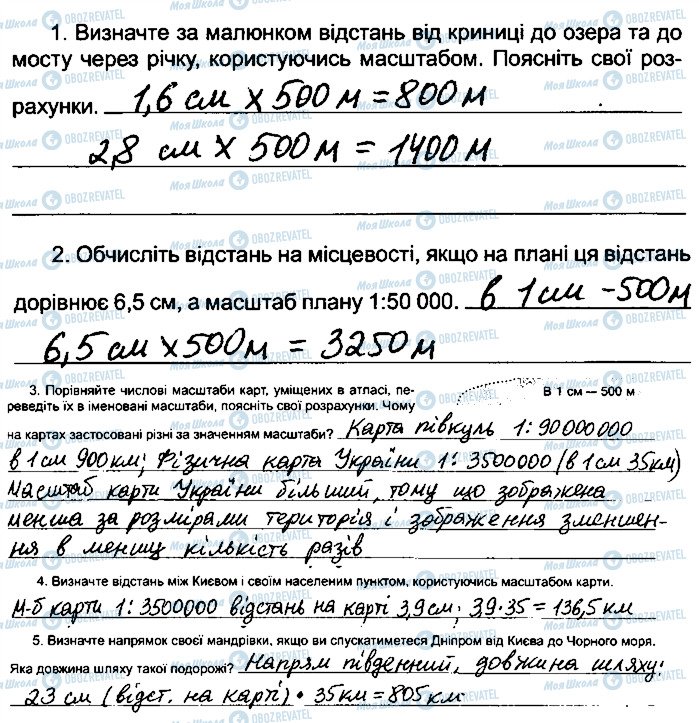 1. Визначте за малюнком відстань від криниці до озера та до
мосту через річку, користуючись масштабом. Поясніть свої роз-
рахунки. 1,6 см х 500 м = 800 м
2,8 см х 500 м = 1400 м
2. Обчисліть відстань на місцевості, якщо на плані ця відстань
дорівнює 6,5 см, а масштаб плану 1:50 000. в 1 см - 500 м
6,5 см х 500 м = 3250 м
3. Порівняйте числові масштаби карт, уміщених в атласі, пе-
реведіть їх в іменовані масштаби, поясніть свої розрахунки. Чому
В 1 см — 500 м
на картах застосовані різні за значенням масштаби? Карта півкуль 1:90 000 000
в 1 см 900 км; Фізична карта України 1:3500000 (в 1 см 35 км)
Масштаб карти України більший, тому що зображена
менша за розмірами територія і зображення зменшен-
ня в меншу кількість разів
4. Визначте відстань між Києвом і своїм населеним пунктом, користуючись масштабом карти.
М-б карти 1:3500000 відстань на карті 3,9 см; 39·35 = 136,5 км
5. Визначте напрямок своєї мандрівки, якщо ви спускатиметеся Дніпром від Києва до Чорного моря.
Яка довжина шляху такої подорожі? Напрям південний, довжина шляху:
23 см (відст. на карті) · 35 км = 805 км